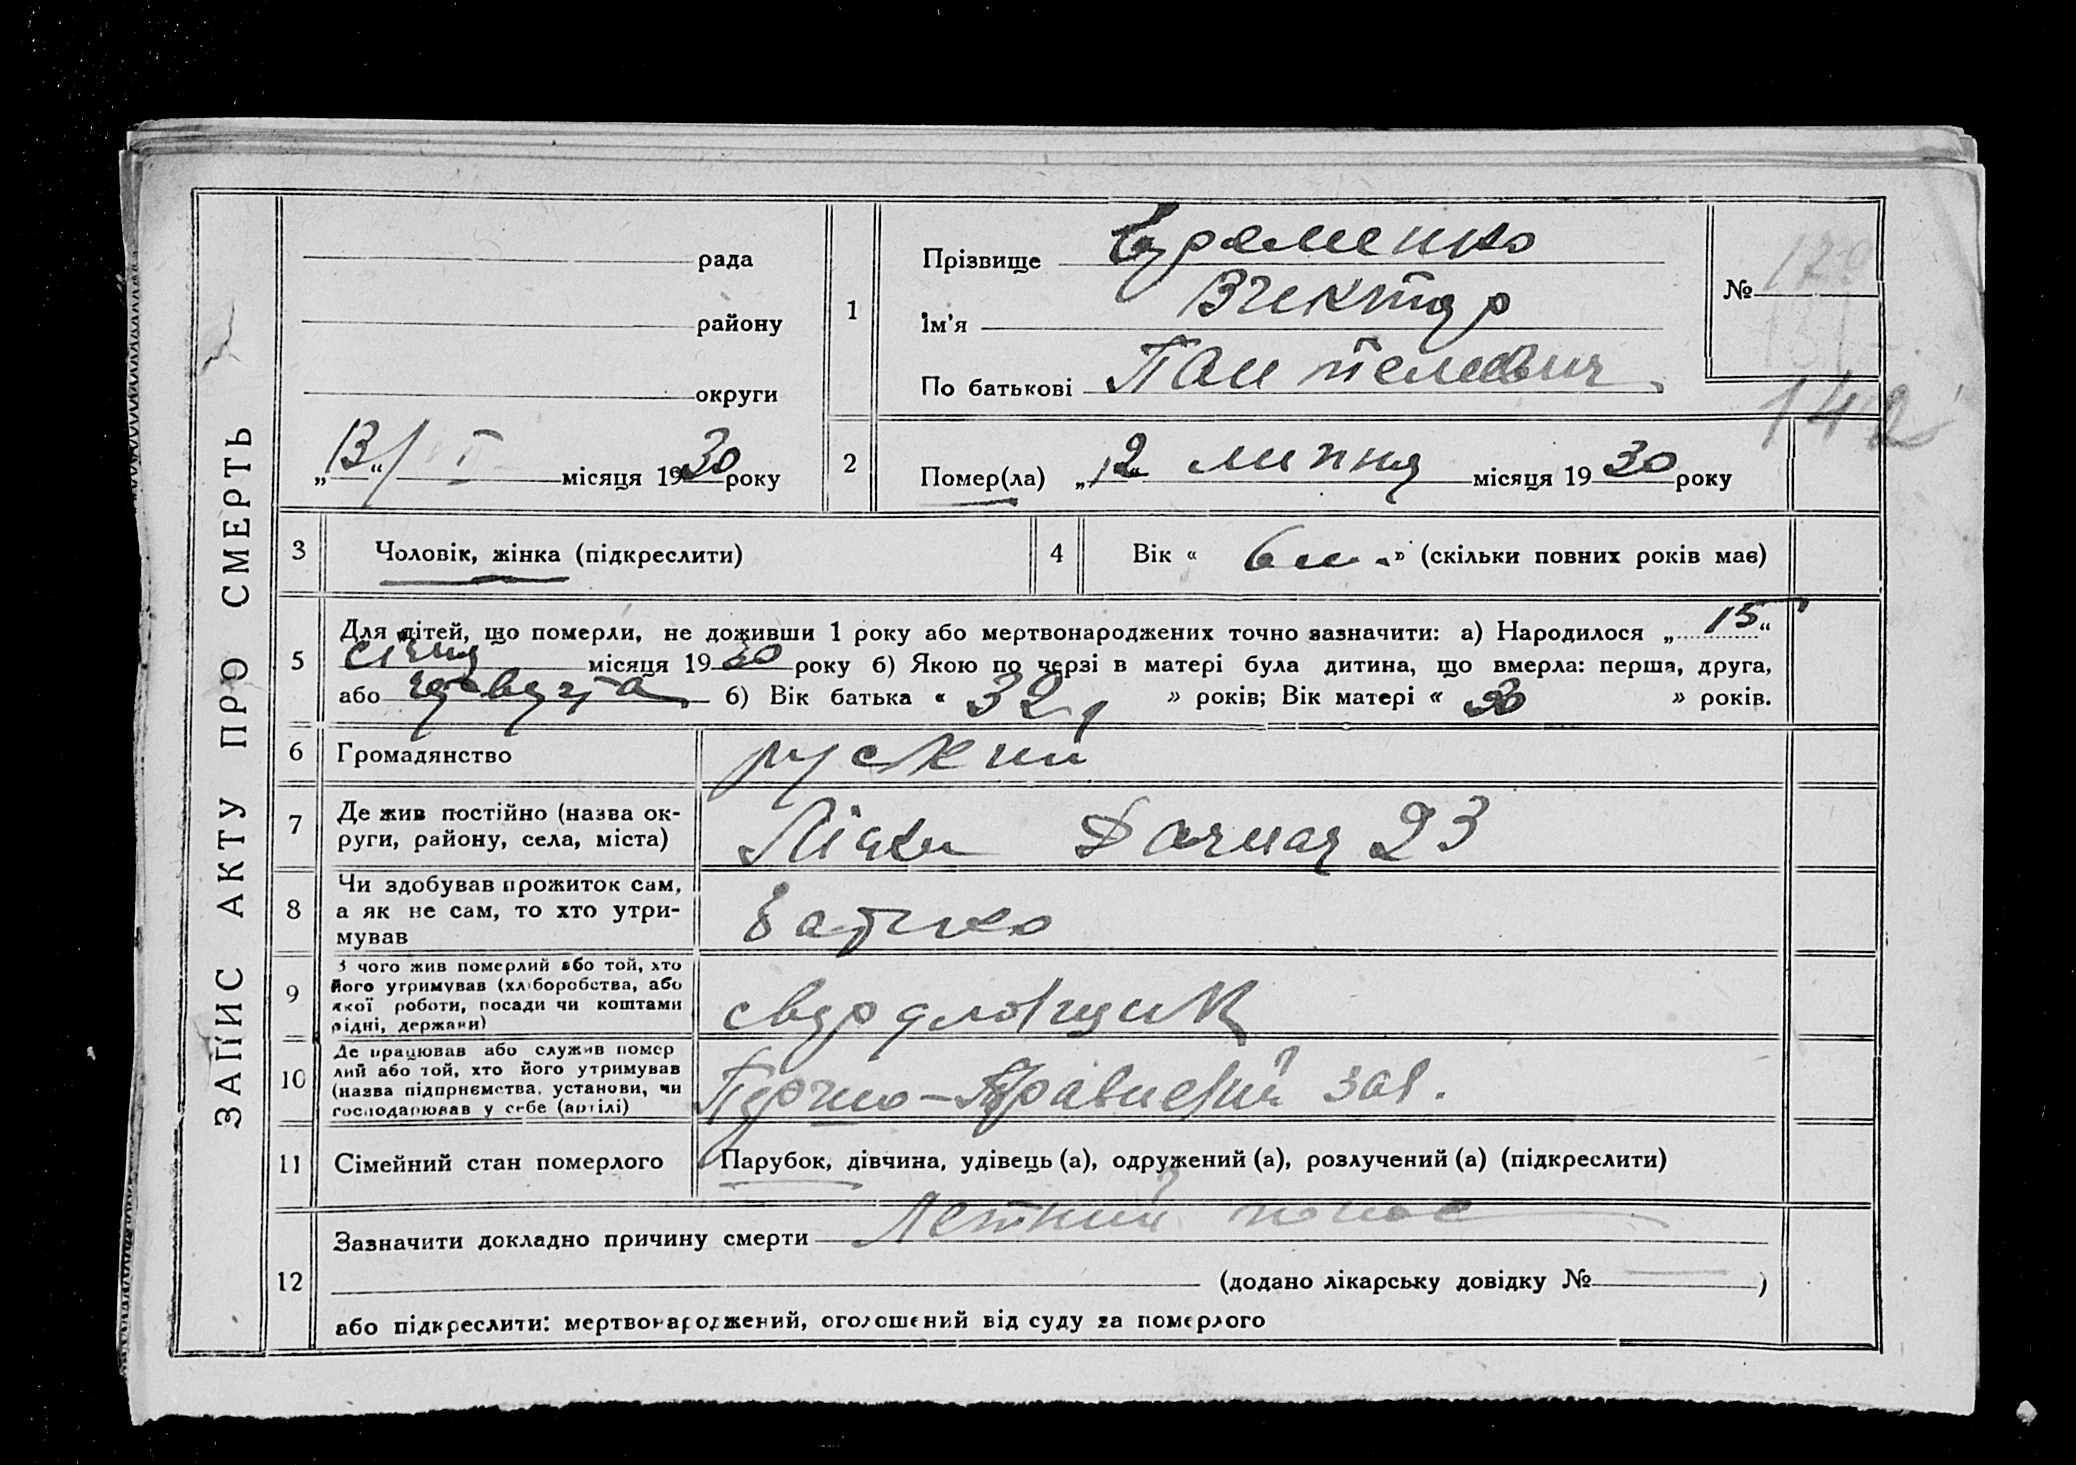 ЗАПИС АКТУ ПРО СМЕРТЬ
рада
району
округи
„13“/ місяця 1930 року
1
Прізвище
Ім'я Виктор
По батькові Пантелевич
№
142
2
Помер(ла) „12“ липня місяця 1930 року
3
Чоловік, жінка (підкреслити)
4
Вік « 6 м. » (скільки повних років має)
5
Для дітей, що померли, не доживши 1 року або мертвонароджених точно зазначити: а) Народилося „15“
січня місяця 1930 року б) Якою по черзі в матері була дитина, що вмерла: перша, друга,
або б) Вік батька « 32 » років; Вік матері « 30 » років.
6
Громадянство руский
7
Де жив постійно (назва ок-
руги, району, села, міста)
Дачная 23
8
Чи здобував прожиток сам,
а як не сам, то хто утри-
мував
батько
9
З чого жив померлий або той, хто
його утримував (хліборобства, або
якої роботи, посади чи коштами
рідні, держави)
10
Де працював або служив помер
лий або той, хто його утримував
(назва підприємства, установи, чи
господарював у себе (артілі)
зав.
11
Сімейний стан померлого
Парубок, дівчина, удівець (а), одружений (а), розлучений (а) (підкреслити)
12
Зазначити докладно причину смерти Летний понос
(додано лікарську довідку № )
або підкреслити: мертвонароджений, оголошений від суду за померлого